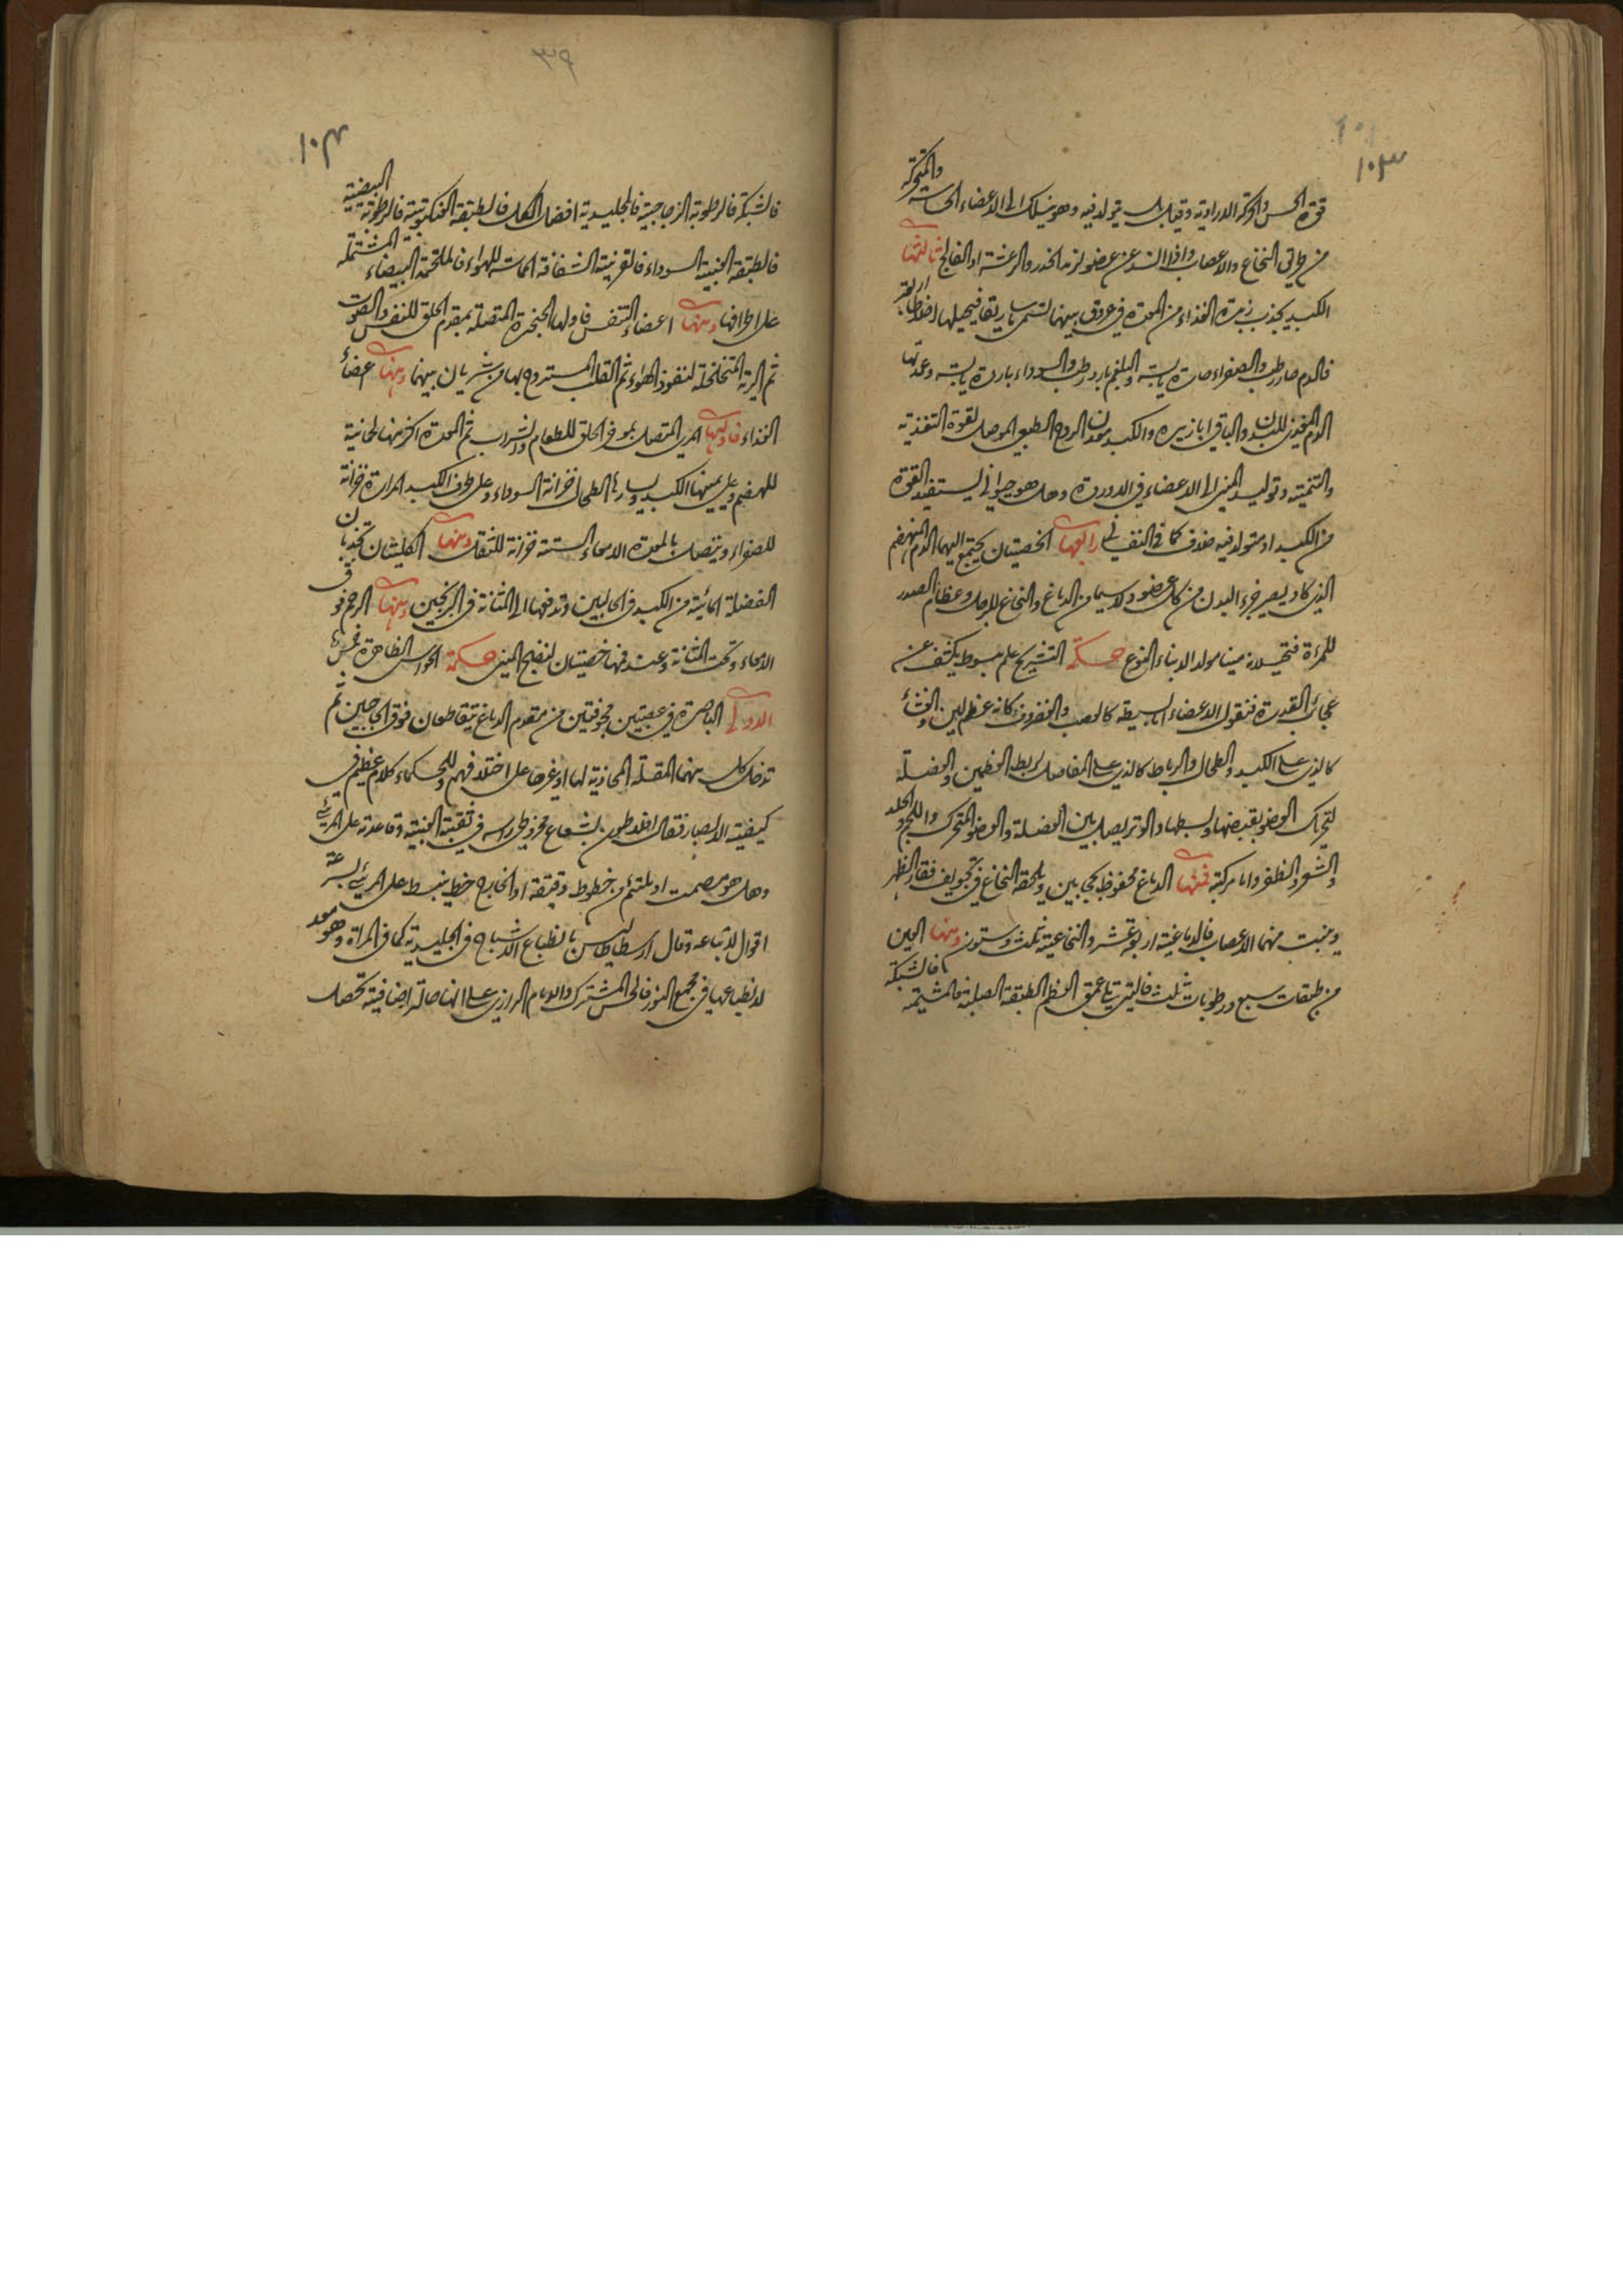 ١٠٣
قوة الحس والحركة الارادية وقيل بل يتولد فيه وهو يسلك الى الاعضاء الحاسة والمتحركة
من طريق النخاع والاعصاب واذا انسد عن عضو لزمه الخدر والرعشة او الفالج ثالثها
الكبد يجذب زبدة الغذاء من المعدة في عروق بينهما تسمى ماساريقا فيحيلها اخلاطا اربعة
فالدم حار رطب والصفراء حارة يابسة والبلغم بارد رطب والسوداء باردة يابسة وعمدتها
الدم المغذي للبدن والباقي ابازيره والكبد معدن الروح الطبيعي الموصل لقوة التغذية
والتنمية وتوليد المني الى الاعضاء في الاوردة وهل هو حيواني يستفيد القوة
من الكبد او متولد فيه خلاف كما في النفساني رابعها الخصيتان يجتمع اليهما الدم المنهضم
الذي كاد يصير جزء البدن من كل عضو ولا سيما من الدماغ والنخاع للرجل وعظام الصدر
للمرأة فتحيلانه منيا مولدا لابناء النوع حكمة التشريح علم مبسوط يكشف عن
عجائب القدرة فنقول الاعضاء اما بسيطة كالعصب والغضروف كانه عظم لين والغشاء
كالذي على الكبد والطحال والرباط كالذي على المفاصل لربط العظمين والعضلة
لتحرك العضو بقبضها وبسطها والوتر يصل بين العضلة والعضو المتحرك واللحم والجلد
والشعر والظفر واما مركبة فمنها الدماغ محفوظ بحجابين ويلحقه النخاع في تجويف فقار الظهر
وينبت منهما الاعصاب فالدماغية اربعة عشر والنخاعية ثلث وستون ومنها العين
من طبقات سبع ورطوبات ثلث فالتي تلي عمق العظم الطبقة الصلبة فالمشيمة فالشبكة
٣٩
١٠٤
فالشبكة فالرطوبة الزجاجية فالجليدية افضل الكل فالطبقة العنكبوتية فالرطوبة البيضية
فالطبقة العنبية السوداء فالقرنية الشفافة المماسة للهواء فالملتحمة البيضاء المشتملة
على اطرافها ومنها اعضاء التنفس فاولها الحنجرة المتصلة بمقدم الحلق للنفس والصوت
ثم الرية المتخلخلة لنفوذ الهواء ثم القلب المستروح بها من شريان بينهما ومنها اعضاء
الغذاء فاولها المري المتصل بموخر الحلق للطعام والشراب ثم المعدة اكثر منها لحانية
للهضم وعلى يمينها الكبد ويسارها الطحال خزانة السوداء وعلى طرف الكبد المرارة خزانة
للصفراء ويتصل بالمعدة الامعاء الستة خزانة للثفل ومنها الكليتان تجذبان
الفضلة المائية من الكبد في الحالبين وتدفعها الى المثانة في البربخين ومنها الرحم فوق
الامعاء وتحت المثانة وعند فمها خصيتان لنضج المني حكمة الحواس الظاهرة خمس
الاولى الباصرة في عصبتين مجوفتين من مقدم الدماغ يتقاطعان فوق الحاجبين ثم
تدخل كل منهما المقلة المحاذية لها او غيرها على اختلافهم وللحكماء كلام عظيم في
كيفية الابصار فقال افلاطون بشعاع مخروط راسه في ثقبة العنبية وقاعدته على المرئي
وهل هو مصمت او ملتئم من خطوط دقيقة او الخارج خط ينبسط على المرئي بسرعة
اقوال لاتباعه وقال ارسطاطاليس بانطباع الاشباح في الجليدية كما في المراة وهو معد
لانطباعها في مجمع النور فالحس المشترك والامام الرازي على انها حالة اضافية تحصل